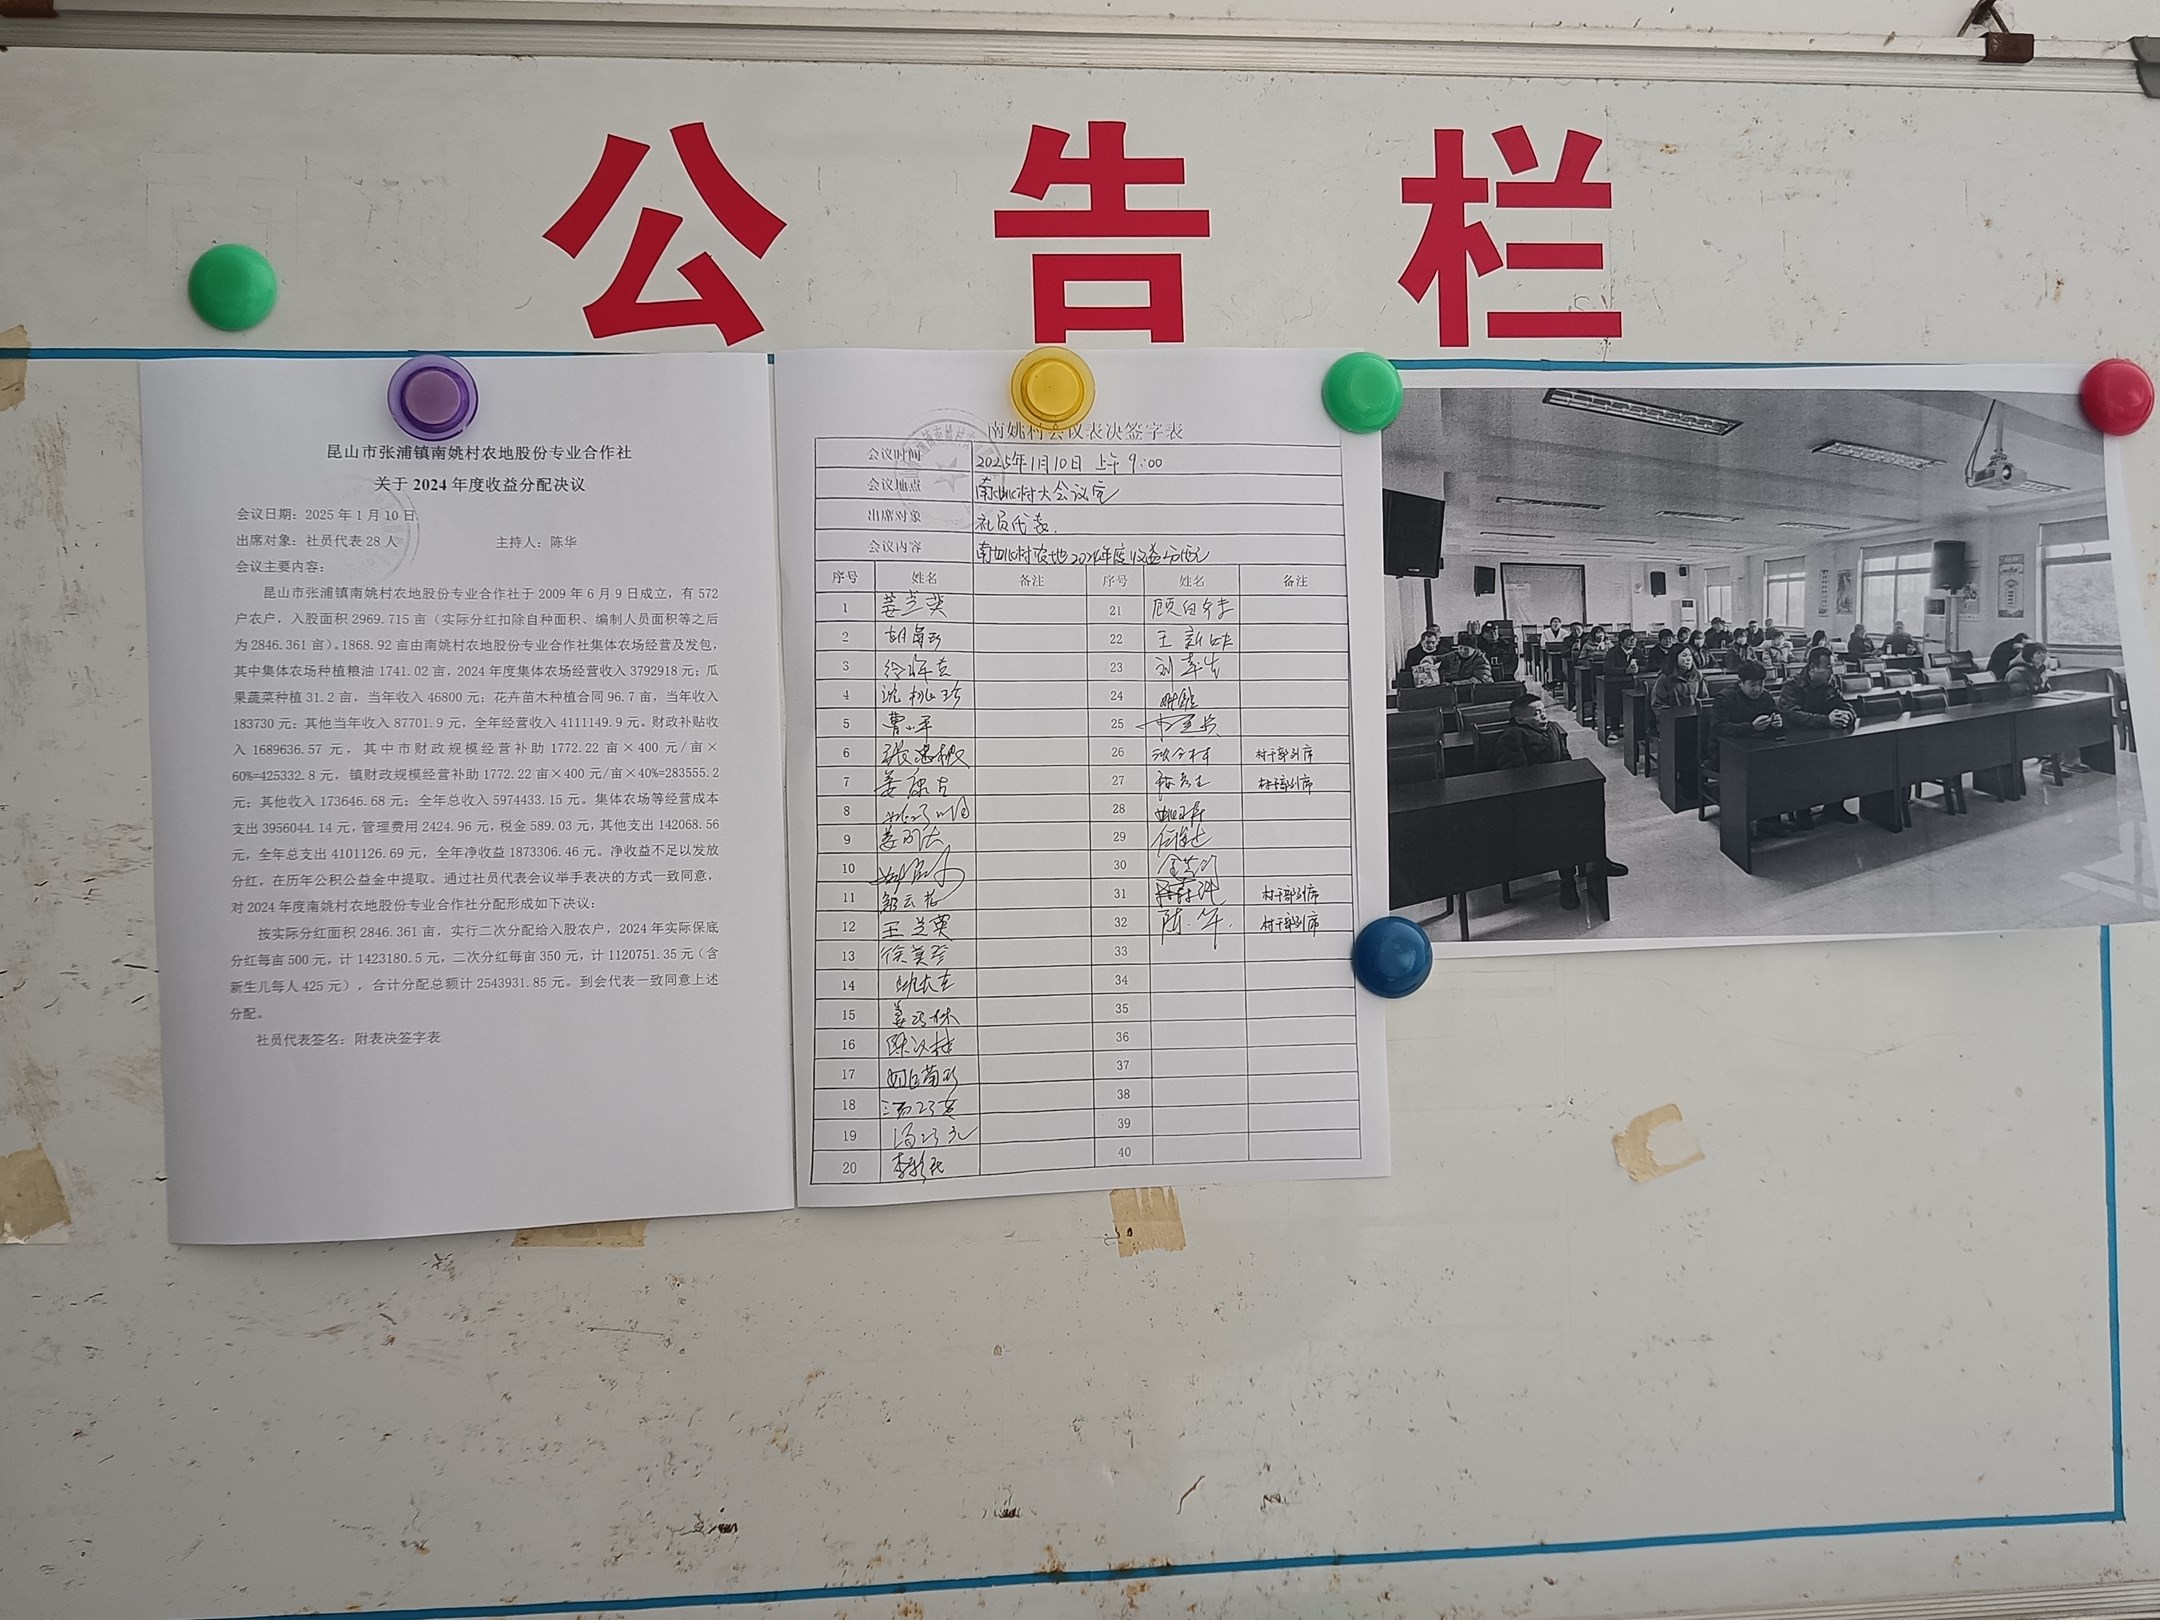 公告栏
昆山市张浦镇南姚村农地股份专业合作社
关于 2024 年度收益分配决议
会议日期：2025 年 1 月 10 日
出席对象：社员代表 28 人 主持人：陈华
会议主要内容：
昆山市张浦镇南姚村农地股份专业合作社于 2009 年 6 月 9 日成立，有 572
户农户，入股面积 2969.715 亩（实际分红扣除自种面积、编制人员面积等之后
为 2846.361 亩）。1868.92 亩由南姚村农地股份专业合作社集体农场经营及发包，
其中集体农场种植粮油 1741.02 亩，2024 年度集体农场经营收入 3792918 元；瓜
果蔬菜种植 31.2 亩，当年收入 46800 元；花卉苗木种植合同 96.7 亩，当年收入
183730 元；其他当年收入 87701.9 元，全年经营收入 4111149.9 元。财政补贴收
入 1689636.57 元，其中市财政规模经营补助 1772.22 亩×400 元/亩×
60%=425332.8 元，镇财政规模经营补助 1772.22 亩×400 元/亩×40%=283555.2
元；其他收入 173646.68 元；全年总收入 5974433.15 元。集体农场等经营成本
支出 3956044.14 元，管理费用 2424.96 元，税金 589.03 元，其他支出 142068.56
元，全年总支出 4101126.69 元，全年净收益 1873306.46 元。净收益不足以发放
分红，在历年公积公益金中提取。通过社员代表会议举手表决的方式一致同意，
对 2024 年度南姚村农地股份专业合作社分配形成如下决议：
按实际分红面积 2846.361 亩，实行二次分配给入股农户，2024 年实际保底
分红每亩 500 元，计 1423180.5 元，二次分红每亩 350 元，计 1120751.35 元（含
新生儿每人 425 元），合计分配总额计 2543931.85 元。到会代表一致同意上述
分配。
社员代表签名：附表决签字表
南姚村会议表决签字表
会议时间 2025年1月10日 上午 9:00
会议地点 南姚村大会议室
出席对象 社员代表.
会议内容 南姚村农地2024年度收益分配
序号 姓名 备注 序号 姓名 备注
1 姜兰英 21
2 22 王
3 23
4 沈桃珍 24
5 曹小平 25
6 26 村干部列席
7 姜 27 村干部列席
8 28
9 姜 29
10 30
11 邹云花 31 村干部列席
12 王兰英 32 陈华. 村干部列席
13 徐美琴 33
14 34
15 姜 35
16 陈汉桂 36
17 37
18 38
19 39
20 李 40